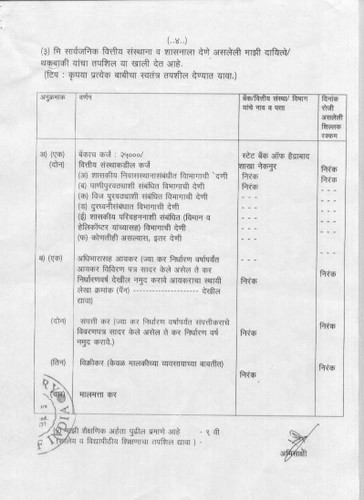 (..४..)
(३) मि सार्वजनिक वित्तीय संस्थाना व शासनाला देणे असलेली माझी दायित्वे/
थकबाकी यांचा तपशिल या खाली देत आहे.
(टिप : कृपया प्रत्येक बाबीचा स्वतंत्र तपशील देण्यात यावा.)
अनुक्रमांक वर्णन बँक/वित्तीय संस्था/ विभाग यांचे नाव व पत्ता दिनांक रोजी असलेली शिल्लक रक्कम
अ) (एक) बँकाच कर्ज : २५०००/ स्टेट बँक ऑफ हैद्राबाद शाखा नेकनुर
(दोन) वित्तीय संस्थाकडील कर्ज निरंक
(अ) शासकीय निवासस्थानासंबंधीत विभागाची देणी निरंक निरंक
(ब) पाणीपुरवठयाशी संबंधित विभागाची देणी निरंक निरंक
(क) विज पुरवठयाशी संबंधित विभागाची देणी - - - - - -
(ड) दुरध्वनीसंबंधात विभागाची देणी - - - - - -
(ई) शासकीय परिवहनाशी संबंधित (विमान व - - - - - -
हेलिकॉप्टर यांच्यासह) विभागाची देणी - - - - - -
(फ) कोणतीही असल्यास, इतर देणी - - - - - -
ब) (एक) अधिभारासह आयकर (ज्या कर निर्धारण वर्षापर्यंत
आयकर विविरण पत्र सादर केले असेल ते कर
निर्धारणवर्ष देखील नमुद करावे आयकराचा स्थायी निरंक निरंक
लेखा क्रमांक (पॅन) ------------------ देखील
द्यावा)
(दोन) संपत्ती कर (ज्या कर निर्धारण वर्षापर्यंत संपत्तीकराचे
विवरणपत्र सादर केले असेल ते कर निर्धारण वर्ष निरंक निरंक
नमुद करावे.)
(तिन) विक्रीकर (केवळ मालकीच्या व्यवसायाच्या बाबतीत) निरंक निरंक
मालमत्ता कर
माझी शैक्षणिक अर्हता पुढील प्रमाणे आहे - ९ वी
व विद्यापीठीय शिक्षणाचा तपशिल द्यावा ) -
INDIA